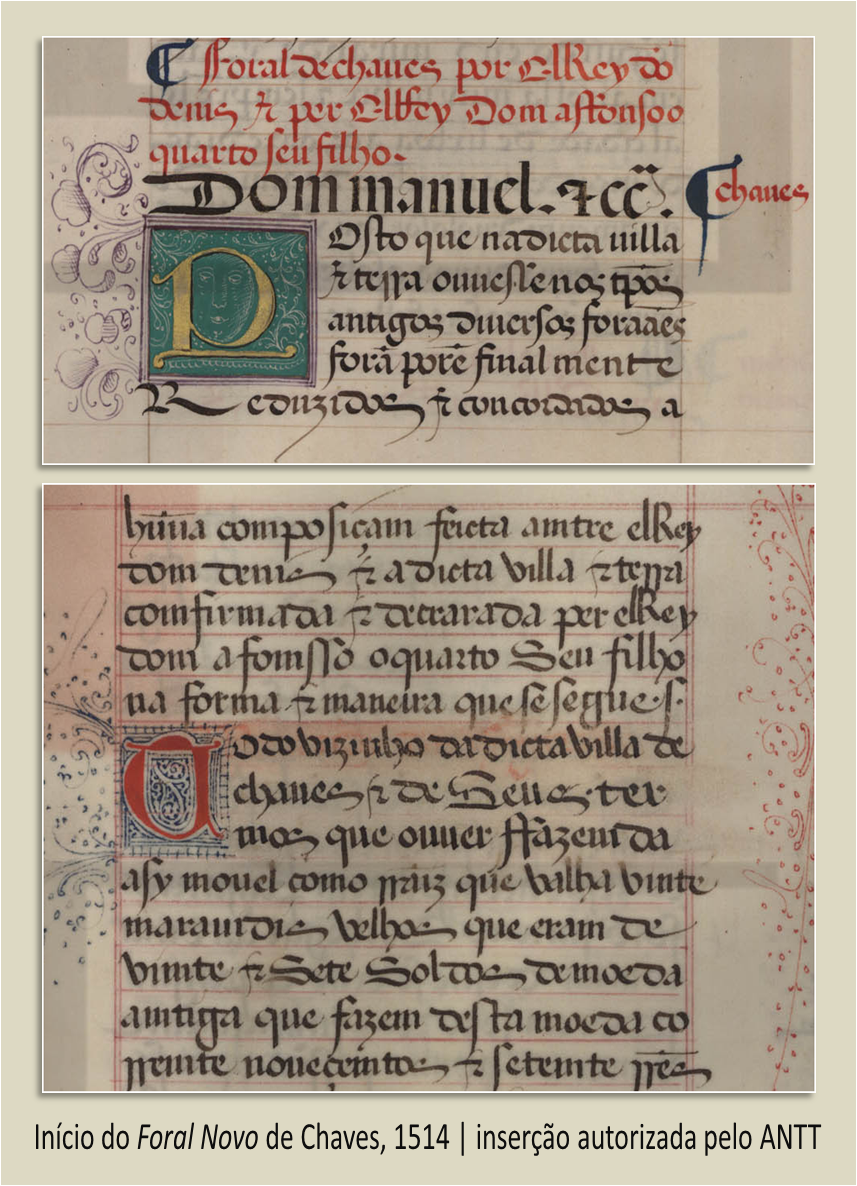 fforal de chaues por ElRey dõ
denis ⁊ per ElRey Dom affonso o
quarto seu filho.
Dom manuel. ⁊ cc̃.
chaues
Posto que na dicta uilla
⁊ terra ouuesse nos tp̃os
antigos diuersos foraaẽs
forã porẽ final mente
Reduzidos ⁊ concordados a
hũua composiçam feicta amtre elRey
dom denis ⁊ a dicta villa ⁊ terra
comfirmada ⁊ decrarada per elRey
dom afomsso o quarto Seu filho
na forma ⁊ maneira que se segue .s.
Todo vizinho da dicta villa de
chaues ⁊ de Seus ter
mos que ouuer ffazemda
asy mouel como rraiz que valha vimte
marauidis velhos que eram de
vimte ⁊ Sete Soldos de moeda
amtiga que fazem desta moeda co
rremte nouecemtos ⁊ setemte rreẽs
Início do Foral Novo de Chaves, 1514 | inserção autorizada pelo ANTT